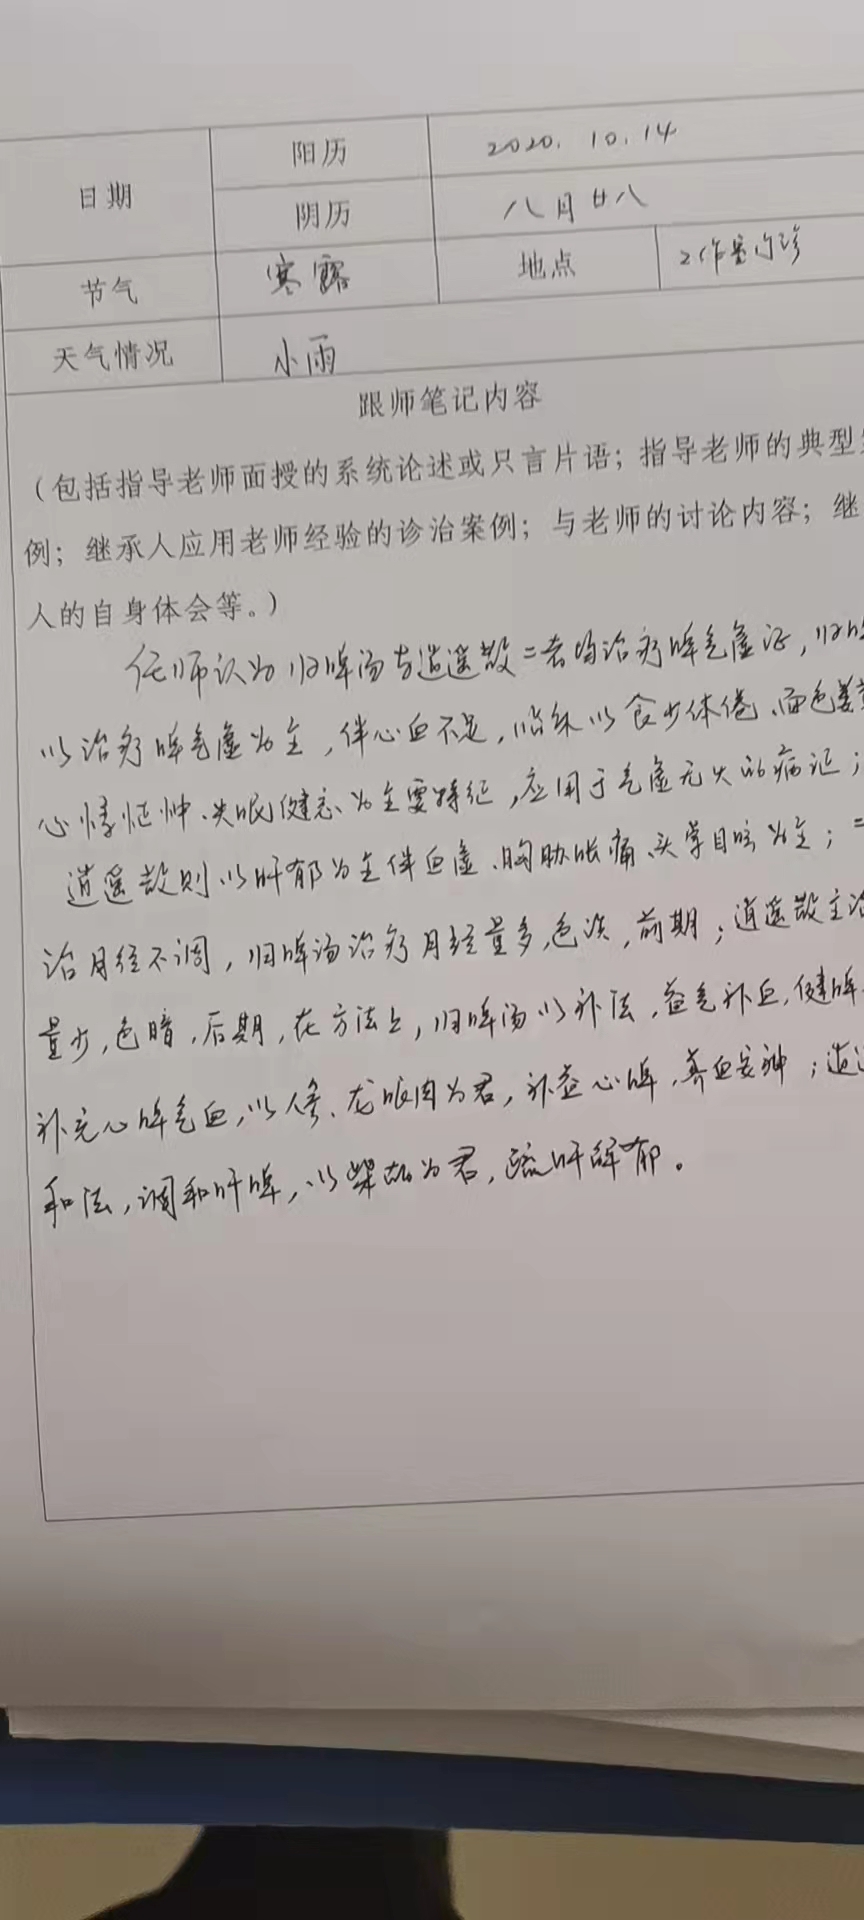 日期 阳历 2020.10.14
阴历 八月廿八
节气 寒露 地点 工作室门诊
天气情况 小雨
跟师笔记内容
（包括指导老师面授的系统论述或只言片语；指导老师的典型
例；继承人应用老师经验的诊治案例；与老师的讨论内容；继
人的自身体会等。）
任师认为归脾汤与逍遥散二者均治疗脾气虚证，归脾
以治疗脾气虚为主，伴心血不足，临床以食少体倦、面色萎黄
心悸怔忡、失眠健忘为主要特征，应用于气虚无火的病证；
逍遥散则以肝郁为主伴血虚、胸胁胀痛、头晕目眩为主；二
治月经不调，归脾汤治疗月经量多，色淡，前期；逍遥散主治
量少，色暗，后期，在方法上，归脾汤以补法，益气补血，健脾
补充心脾气血，以人参、龙眼肉为君，补益心脾，养血安神；逍遥
和法，调和肝脾，以柴胡为君，疏肝解郁。